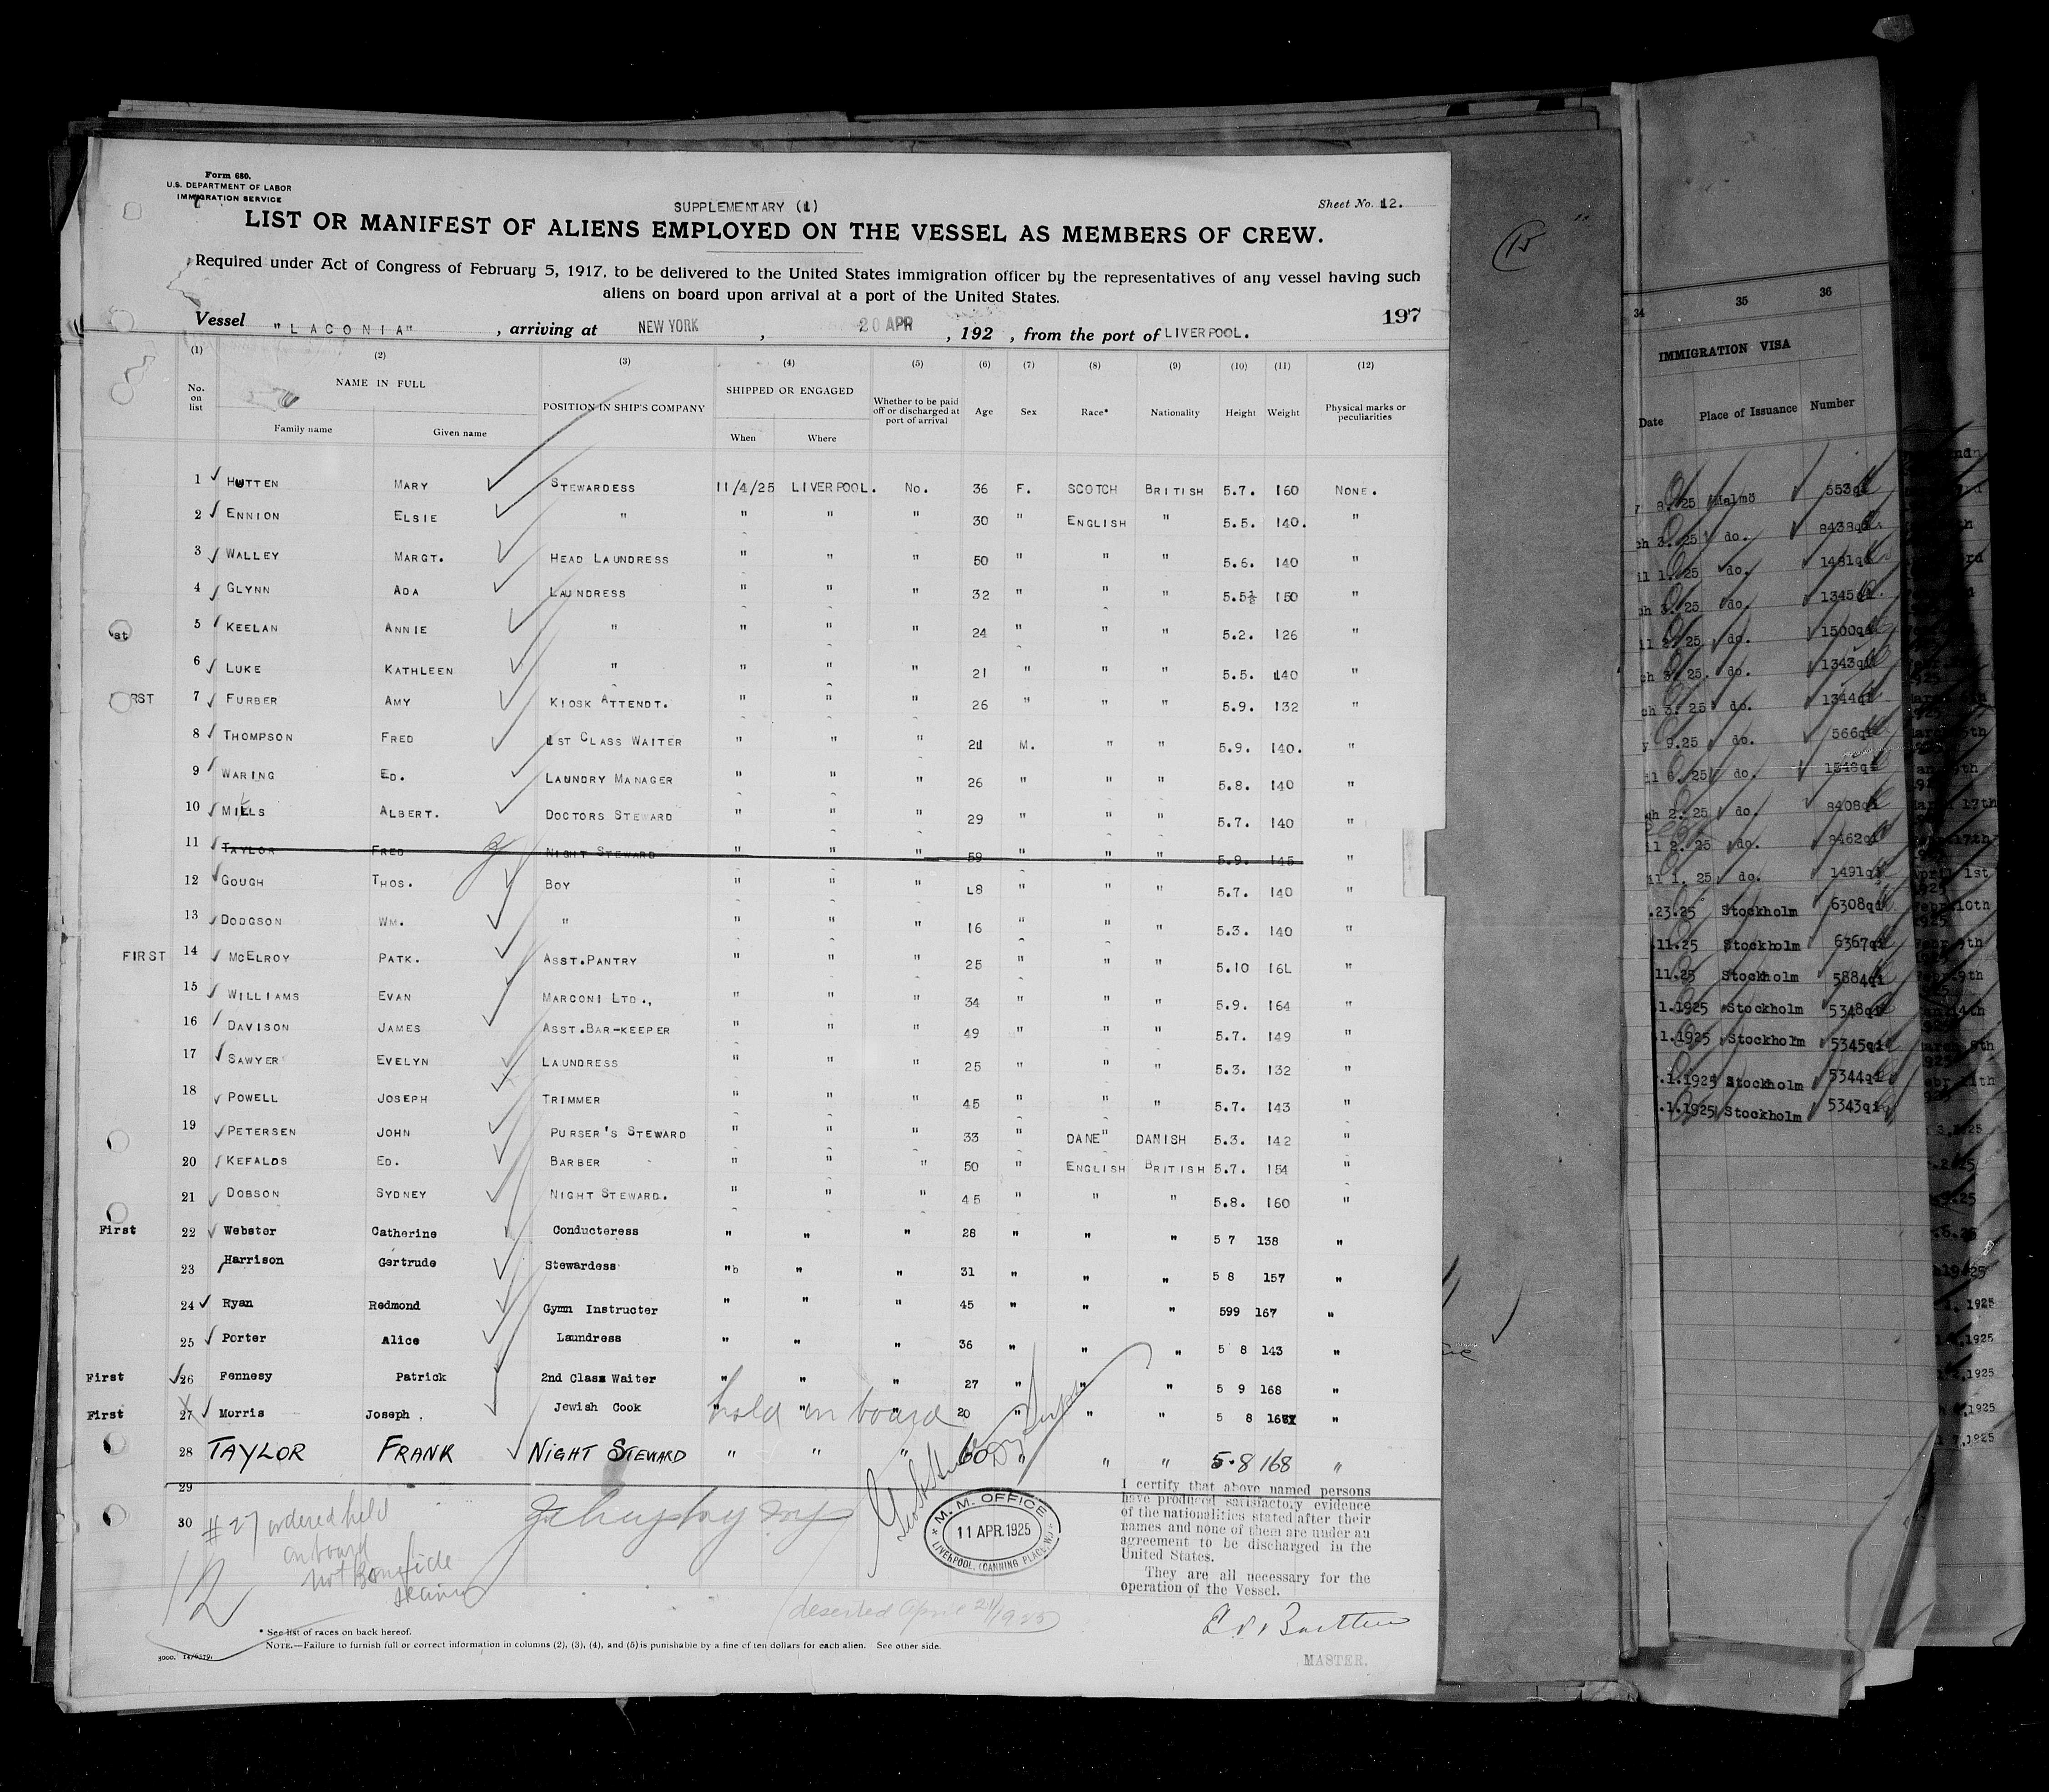 Form 680.
U.S. DEPARTMENT OF LABOR
IMMIGRATION SERVICE
SUPPLEMENTARY (1)
Sheet No. 12.
LIST OR MANIFEST OF ALIENS EMPLOYED ON THE VESSEL AS MEMBERS OF CREW.
Required under Act of Congress of February 5, 1917, to be delivered to the United States immigration officer by the representatives of any vessel having such
aliens on board upon arrival at a port of the United States.
197
Vessel "LACONIA", arriving at NEW YORK, 20 APR, 192 , from the port of LIVERPOOL.
(1) (2) (3) (4) (5) (6) (7) (8) (9) (10) (11) (12)
No. on list NAME IN FULL POSITION IN SHIP'S COMPANY SHIPPED OR ENGAGED Whether to be paid off or discharged at port of arrival Age Sex Race* Nationality Height Weight Physical marks or peculiarities
Family name Given name When Where
1 HUTTEN MARY STEWARDESS 11/4/25 LIVERPOOL. No. 36 F. SCOTCH BRITISH 5.7. 160 NONE.
2 ENNION ELSIE " " " " 30 " ENGLISH " 5.5. 140. "
3 WALLEY MARGT. HEAD LAUNDRESS " " " 50 " " " 5.6. 140 "
4 GLYNN ADA LAUNDRESS " " " 32 " " " 5.5½ 150 "
5 KEELAN ANNIE " " " " 24 " " " 5.2. 126 "
6 LUKE KATHLEEN " " " " 21 " " " 5.5. 140 "
7 FURBER AMY KIOSK ATTENDT. " " " 26 " " " 5.9. 132 "
8 THOMPSON FRED 1ST CLASS WAITER " " " 21 M. " " 5.9. 140. "
9 WARING ED. LAUNDRY MANAGER " " " 26 " " " 5.8. 140 "
10 ALBERT. DOCTORS STEWARD " " " 29 " " " 5.7. 140 "
11 TAYLOR FRED NIGHT STEWARD " " " 59 " " " 5.9. 145 "
12 GOUGH THOS. BOY " " " L8 " " " 5.7. 140 "
13 DODGSON WM. " " " " 16 " " " 5.3. 140 "
FIRST 14 McELROY PATK. ASST.PANTRY " " " 25 " " " 5.10 16L "
15 WILLIAMS EVAN MARCONI LTD., " " " 34 " " " 5.9. 164 "
16 DAVISON JAMES ASST.BAR-KEEPER " " " 49 " " " 5.7. 149 "
17 SAWYER EVELYN LAUNDRESS " " " 25 " " " 5.3. 132 "
18 POWELL JOSEPH TRIMMER " " " 45 " " " 5.7. 143 "
19 PETERSEN JOHN PURSER'S STEWARD " " " 33 " DANE" DANISH 5.3. 142 "
20 KEFALDS ED. BARBER " " " 50 " ENGLISH BRITISH 5.7. 154 "
21 DOBSON SYDNEY NIGHT STEWARD. " " " 45 " " " 5.8. 160 "
First 22 Webster Catherine Conducteress " " " 28 " " " 5 7 138 "
23 Harrison Gertrude Stewardess "b " " 31 " " " 5 8 157 "
24 Ryan Redmond Gymn Instructer " " " 45 " " " 599 167 "
25 Porter Alice Laundress " " " 36 " " " 5 8 143 "
First 26 Fennesy Patrick 2nd Class Waiter " " " 27 " " " 5 9 168 "
First 27 Morris Joseph . Jewish Cook " " " 20 " " " 5 8 "
hold on board
28 TAYLOR FRANK NIGHT STEWARD " " " 60 " " " 5.8 168 "
29
30
#27 ordered held
on board
not Bonafide
seaman
12
M.M. OFFICE
11 APR. 1925
LIVERPOOL, (CANNING PLACE, W.)
I certify that above named persons
have produced satisfactory evidence
of the nationalities stated after their
names and none of them are under an
agreement to be discharged in the
United States.
They are all necessary for the
operation of the Vessel.
(deserted April 21/1925)
MASTER.
* See list of races on back hereof.
NOTE.—Failure to furnish full or correct information in columns (2), (3), (4), and (5) is punishable by a fine of ten dollars for each alien. See other side.
(15
34 35 36
IMMIGRATION VISA
Date Place of Issuance Number
Malmö 553qi
do. 8438qi
do. 1481qi
do. 1345qi
do. 1500qi
do. 1343qi
do. 1344qi
do. 566qi
do. 1548qi
do. 8408qi
do. 8462qi
do. 1491qi
.23.25 Stockholm 6308qi
.11.25 Stockholm 6367qi
11.25 Stockholm 5884qi
1.1925 Stockholm 5348qi
.1.1925 Stockholm 5345qi
.1.1925 Stockholm 5344qi
.1.1925 Stockholm 5343qi